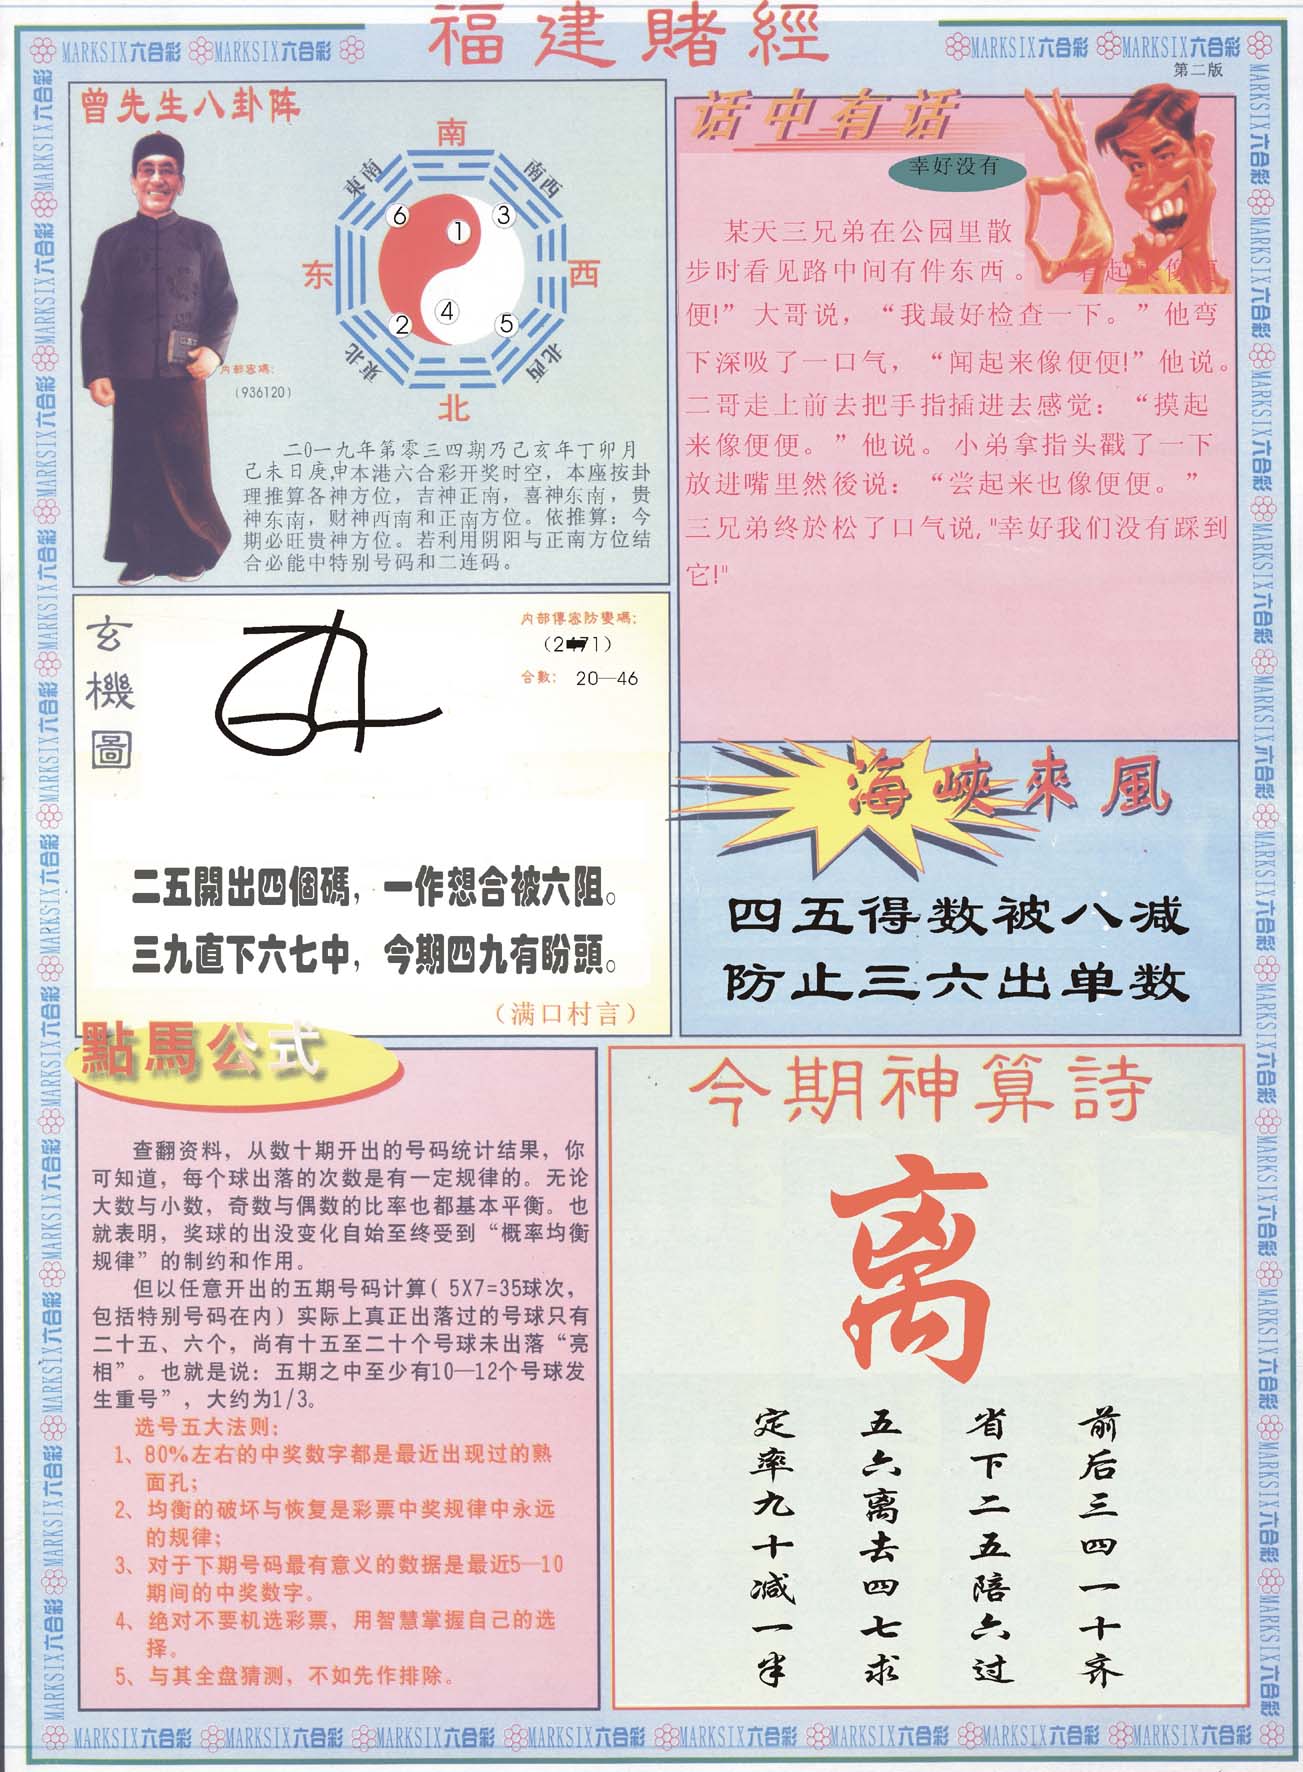 福建賭經
MARKSIX六合彩 MARKSIX六合彩
MARKSIX六合彩 MARKSIX六合彩
第二版
曾先生八卦阵
南
東南
南西
6
1
3
东
西
2
4
5
東北
北西
北
内部密碼：
(936120)
二0一九年第零三四期乃己亥年丁卯月
己未日庚,申本港六合彩开奖时空，本座按卦
理推算各神方位，吉神正南，喜神东南，贵
神东南，财神西南和正南方位。依推算：今
期必旺贵神方位。若利用阴阳与正南方位结
合必能中特别号码和二连码。
话中有话
幸好没有
某天三兄弟在公园里散
步时看见路中间有件东西。“看起来像便
便!”大哥说，“我最好检查一下。”他弯
下深吸了一口气，“闻起来像便便!”他说。
二哥走上前去把手指插进去感觉：“摸起
来像便便。”他说。小弟拿指头戳了一下
放进嘴里然後说：“尝起来也像便便。”
三兄弟终於松了口气说,"幸好我们没有踩到
它!"
玄機圖
内部傳密防變碼：
合數： 20—46
二五開出四個碼，一作想合被六阻。
三九直下六七中，今期四九有盼頭。
（满口村言）
海峽來風
四五得数被八减
防止三六出单数
點馬公式
查翻资料，从数十期开出的号码统计结果，你
可知道，每个球出落的次数是有一定规律的。无论
大数与小数，奇数与偶数的比率也都基本平衡。也
就表明，奖球的出没变化自始至终受到“概率均衡
规律”的制约和作用。
但以任意开出的五期号码计算( 5X7=35球次，
包括特别号码在内）实际上真正出落过的号球只有
二十五、六个，尚有十五至二十个号球未出落“亮
相”。也就是说：五期之中至少有10—12个号球发
生重号”，大约为1/3。
选号五大法则：
1、80%左右的中奖数字都是最近出现过的熟
面孔；
2、均衡的破坏与恢复是彩票中奖规律中永远
的规律；
3、对于下期号码最有意义的数据是最近5—10
期间的中奖数字。
4、绝对不要机选彩票，用智慧掌握自己的选
择。
5、与其全盘猜测，不如先作排除。
今期神算詩
离
前后三四一十齐
省下二五陪六过
五六离去四七求
定率九十减一半
MARKSIX六合彩 MARKSIX六合彩 MARKSIX六合彩 MARKSIX六合彩 MARKSIX六合彩 MARKSIX六合彩 MARKSIX六合彩 MARKSIX六合彩